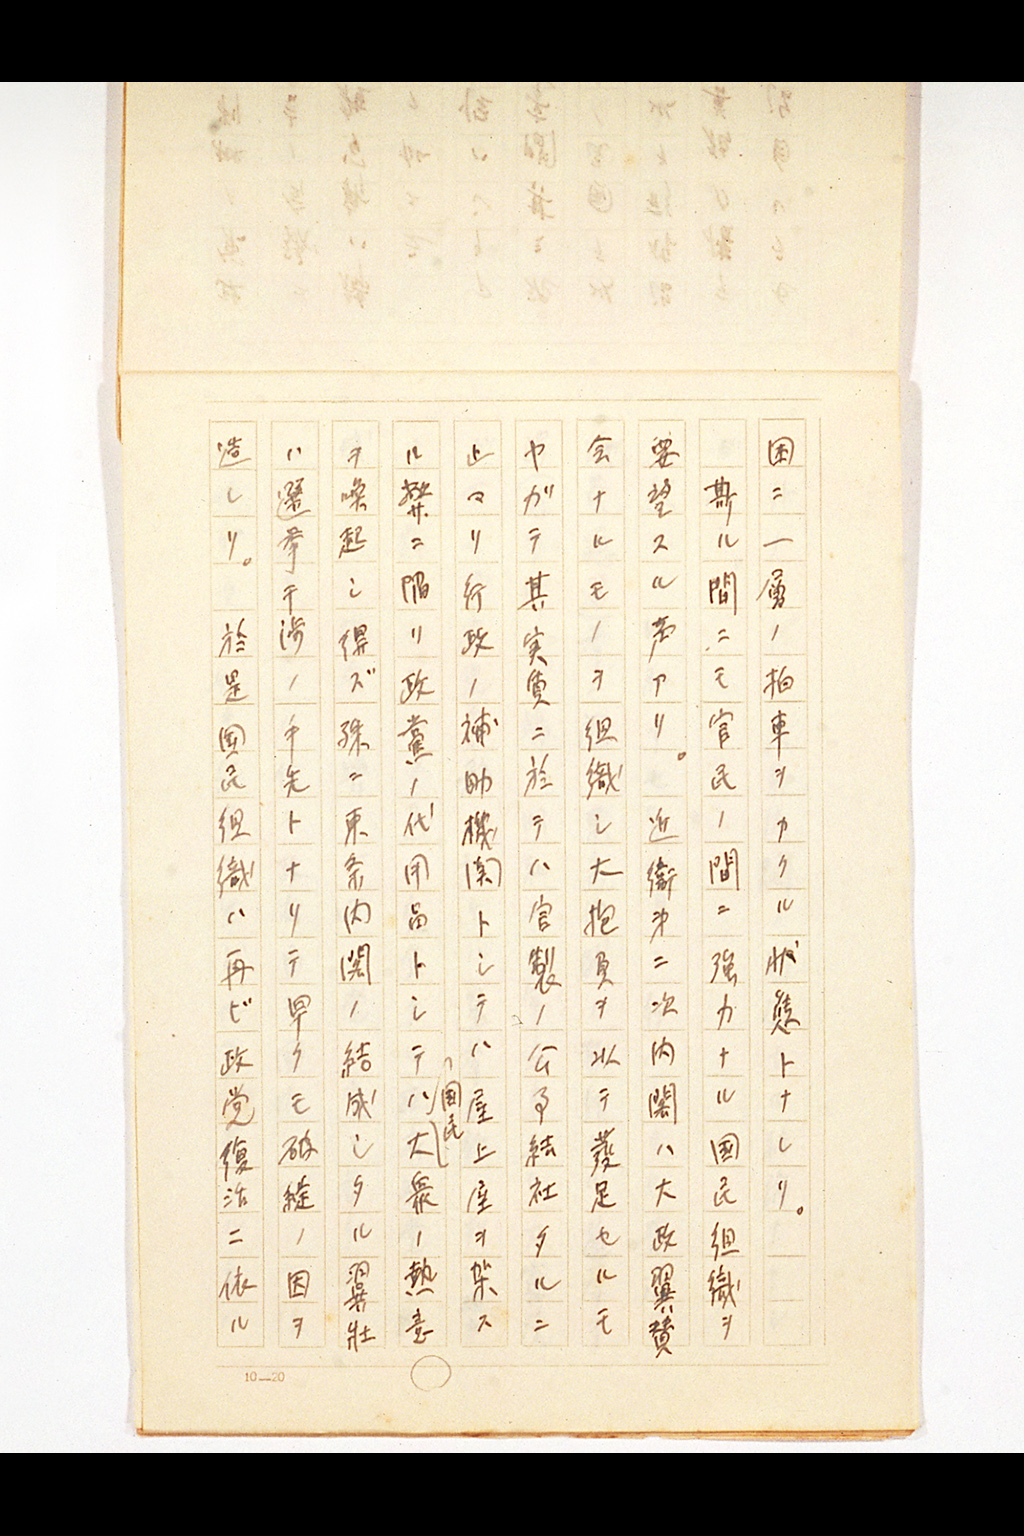 困ニ一層ノ拍車ヲカクル状態トナレリ。
斯ル間ニモ官民ノ間ニ強力ナル國民組織ヲ
要望スル声アリ。近衛第二次内閣ハ大政翼賛
会ナルモノヲ組織シ大抱負ヲ以テ発足セルモ
ヤガテ其実質ニ於テハ官製ノ公事結社タルニ
止マリ行政ノ補助機関トシテハ屋上屋ヲ架ス
ル弊ニ陥リ政黨ノ代用品トシテハ大衆ノ熱意
国民
ヲ喚起シ得ズ殊ニ東条内閣ノ結成シタル翼壮
ハ選挙干渉ノ手先トナリテ早クモ破綻ノ因ヲ
造レリ。於是国民組織ハ再ビ政党復活ニ依ル
10—20